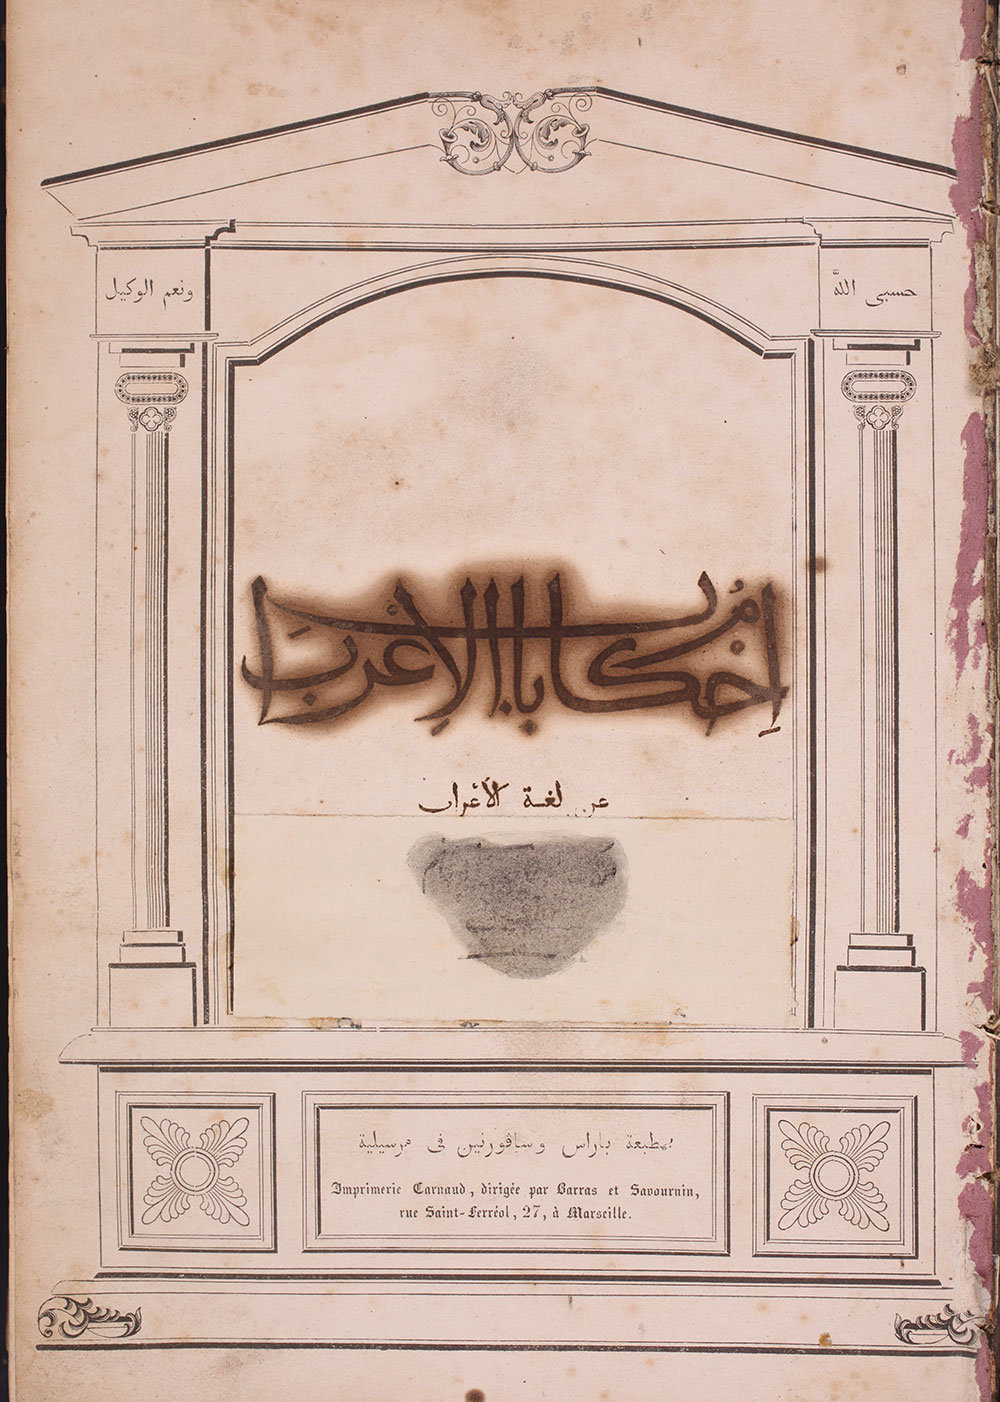 حسبى اللّٰه
ونعم الوكيل
إحكام باب الإعراب
عن لغة الأعراب
بمطبعة باراس وسافورنين فى مرسيلية
Imprimerie Carnaud, dirigée par Barras et Savournin,
rue Saint-Ferréol, 27, à Marseille.